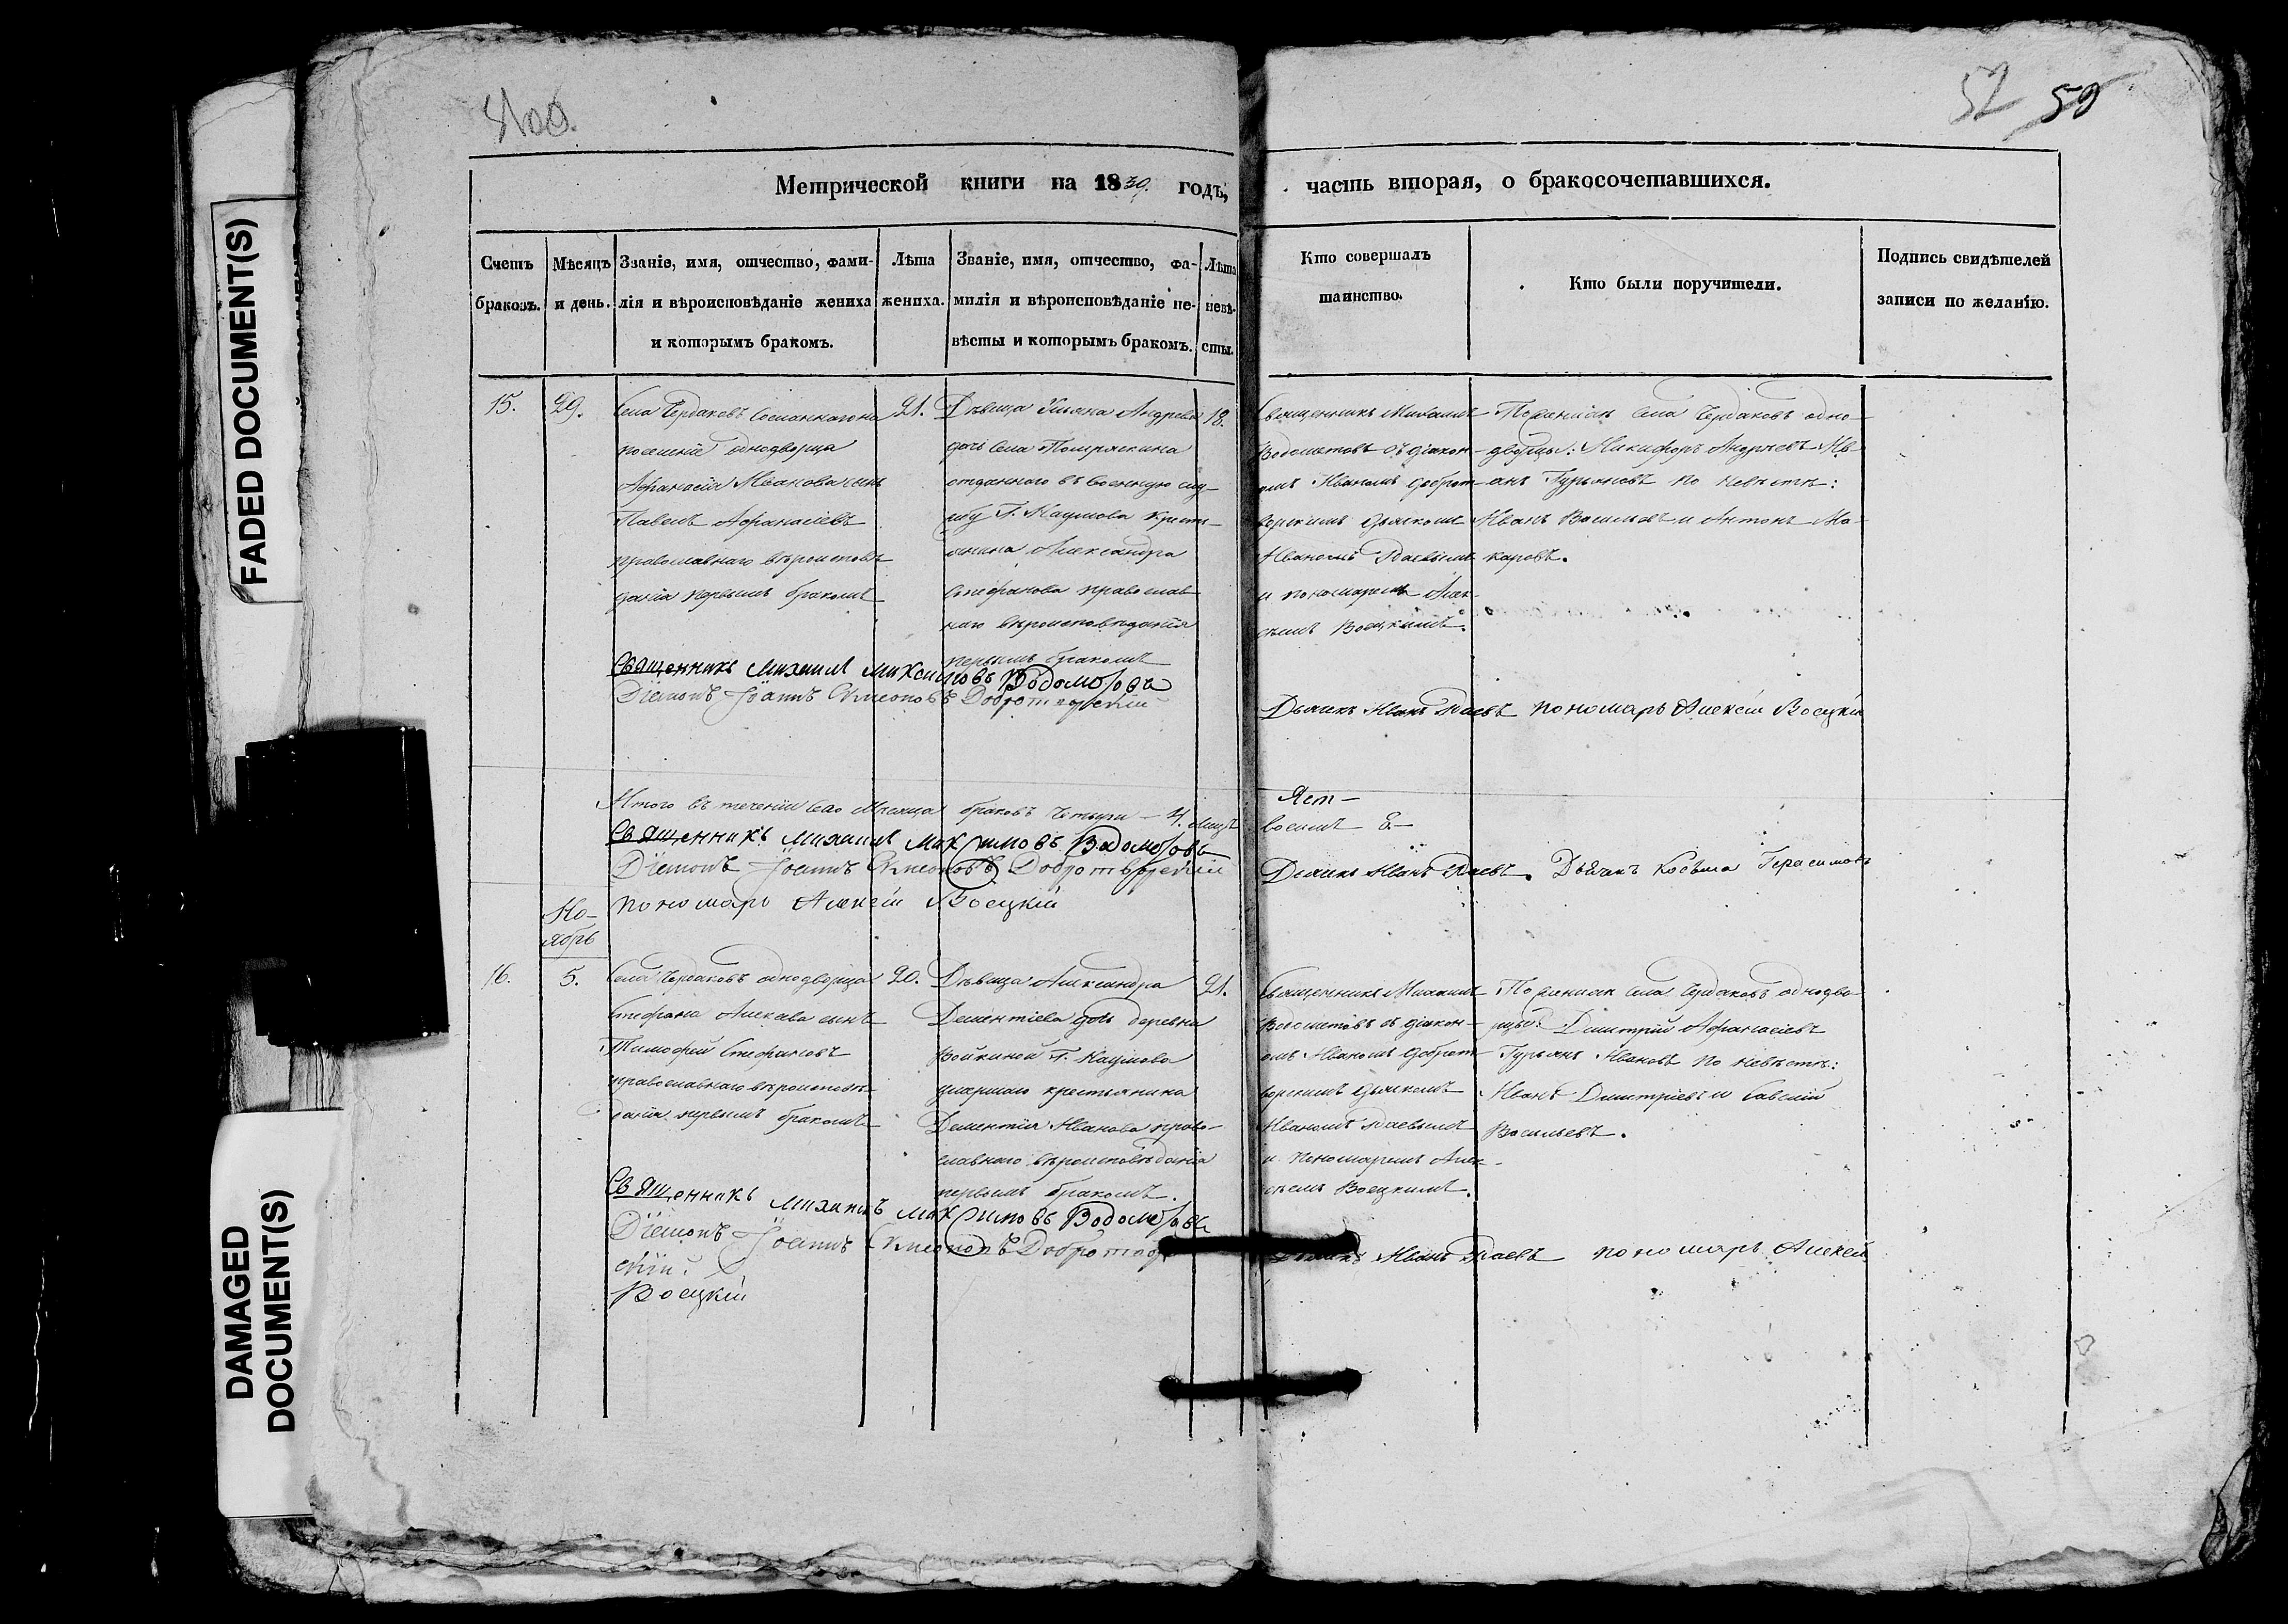 FADED DOCUMENT(S)
DAMAGED DOCUMENT(S)
52 59
Метрической книги на 1839. годъ, часть вторая, о бракосочетавшихся.
Счетъ браковъ.
Мѣсяцъ и день.
Званіе, имя, отчество, фами-
лія и вѣроисповѣданіе жениха
и которымъ бракомъ.
Лѣта
жениха.
Званіе, имя, отчество, фа-
милія и вѣроисповѣданіе не-
вѣсты и которымъ бракомъ.
Лѣта
невѣ-
сты.
Кто совершалъ
таинство.
Кто были поручители.
Подпись свидѣтелей
записи по желанію.
15.
29.
Села Чердаковъ Сосланнаго на
поселеніе однодворца
Афанасія Иванова сынъ
Павелъ Афанасіевъ
православнаго вѣроисповѣ
данія первымъ бракомъ
21.
Дѣвица Ульяна Андреева
дочь села Помряскина
отданнаго въ военную слу-
жбу Г. Наумова кресть-
янина Александра
Стефанова православ
наго вѣроисповѣданія
первымъ бракомъ
18.
Священникъ Михаилъ
Водометовъ съ діакон-
омъ Иваномъ Доброт-
ворскимъ дьячкомъ
Иваномъ Раевымъ
и пономаремъ Алек
сѣемъ Воецкимъ.
По женихѣ села Чердаковъ одно-
дворцы: Никифоръ Андреевъ Ив-
анъ Гурьяновъ по невѣстѣ:
Иванъ Васильевъ и Антонъ Ма-
каровъ.
Священникъ Михаилъ Максимовъ Водометовъ
Діаконъ Іоаннъ Симеоновъ Добротворскій
Дьячекъ Иванъ Раевъ пономарь Алексѣй Воецкій
Итого въ теченіи сего месяца браковъ четыри — 4. лицъ
восемъ 8.—
Священникъ Михаилъ Максимовъ Водометовъ
Діаконъ Іоаннъ Симеоновъ Добротворскій
Дьячекъ Иванъ Раевъ. Дьячекъ Косьма Герасимовъ
пономарь Алексѣй Воецкій
Но-
ябрь
16.
5.
Села Чердаковъ однодворца
Стефана Алекѣева сынъ
Тимофей Стефановъ
православнаго вѣроисповѣ
данія первымъ бракомъ
20.
Дѣвица Александра
Дементіева дочь деревни
Войкиной Г. Наумова
умершаго крестьянина
Дементія Иванова право-
славнаго вѣроисповѣданія
первымъ бракомъ.
21.
Священникъ Михаилъ
Водометовъ съ діакон-
омъ Иваномъ Доброт-
ворскимъ дьячкомъ
Иваномъ Раевымъ
и пономаремъ Алек-
сѣемъ Воецкимъ.
По женихѣ села Чердаковъ однодво-
рцы: Дмитрій Афанасіевъ
Гурьянъ Ивановъ по невѣстѣ:
Иванъ Дмитріевъ и Савелій
Васильевъ.
Священникъ Михаилъ Максимовъ Водометовъ
Діаконъ Іоаннъ Симеоновъ Добротвор
скій.
Дьячекъ Иванъ Раевъ пономарь Алексѣй
Воецкій